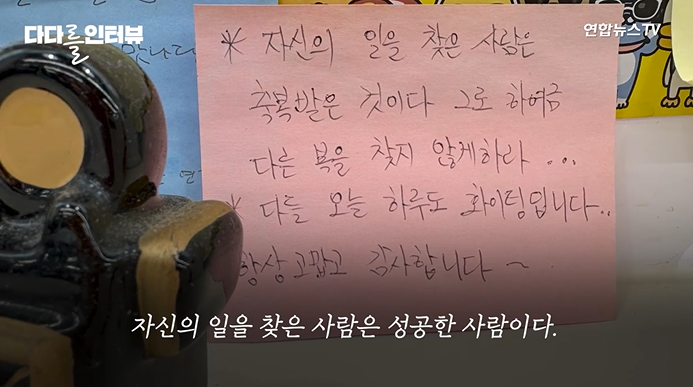 다다를인터뷰
연합뉴스TV
* 자신의 일을 찾은 사람은
축복받은 것이다 그로 하여금
다른 복을 찾지 않게하라 ...
* 다들 오늘 하루도 화이팅입니다..
항상 고맙고 감사합니다 ~
자신의 일을 찾은 사람은 성공한 사람이다.